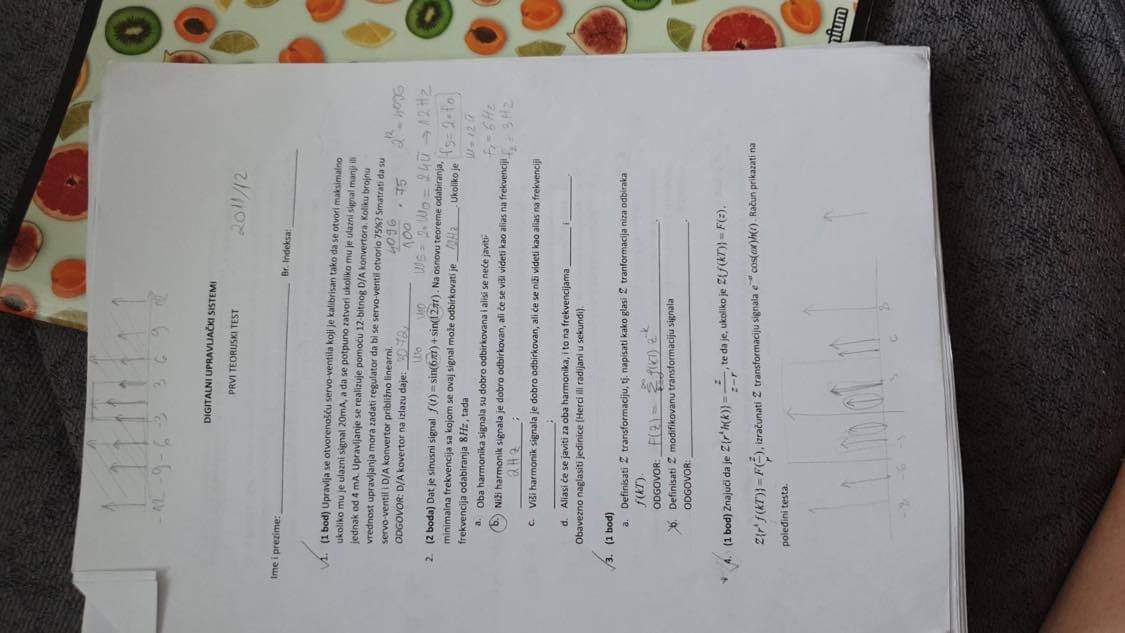 DIGITALNI UPRAVLJAČKI SISTEMI
PRVI TEORIJSKI TEST
2011/12
Ime i prezime: ______ Br. Indeksa: ______
1. (1 bod) Upravlja se otvorenošću servo-ventila koji je kalibrisan tako da se otvori maksimalno
ukoliko mu je ulazni signal 20mA, a da se potpuno zatvori ukoliko mu je ulazni signal manji ili
jednak od 4 mA. Upravljanje se realizuje pomoću 12-bitnog D/A konvertora. Koliku brojnu
vrednost upravljanja mora zadati regulator da bi se servo-ventil otvorio 75%? Smatrati da su
servo-ventil i D/A konvertor približno linearni.
4096/100 · 75 2^12 = 4096
ODGOVOR: D/A kovertor na izlazu daje: 3072
ω0 ω0 ωs = 2·ω0 = 24π → 12Hz
2. (2 boda) Dat je sinusni signal f(t) = sin(6πt) + sin(12πt). Na osnovu teoreme odabiranja,
fs = 2·f0
minimalna frekvencija sa kojom se ovaj signal može odbirkovati je 12Hz. Ukoliko je
ω = 12π
frekvencija odabiranja 8Hz, tada
a. Oba harmonika signala su dobro odbirkovana i alisi se neće javiti;
f1 = 6Hz
b. Niži harmonik signala je dobro odbirkovan, ali će se viši videti kao alias na frekvenciji
f2 = 3Hz
2Hz;
c. Viši harmonik signala je dobro odbirkovan, ali će se niži videti kao alias na frekvenciji
______;
d. Aliasi će se javiti za oba harmonika, i to na frekvencijama ______ i ______.
Obavezno naglasiti jedinice (Herci ili radijani u sekundi).
3. (1 bod)
a. Definisati Z transformaciju, tj. napisati kako glasi Z tranformacija niza odbiraka
f(kT).
ODGOVOR: F(z) = Σ f(kT) z^-k.
b. Definisati Z modifikovanu transformaciju signala
ODGOVOR: ______.
+ 4. (1 bod) Znajući da je Z{r^k h(k)} = z/(z-r), te da je, ukoliko je Z{f(kT)} = F(z),
Z{r^k f(kT)} = F(z/r), izračunati Z transformaciju signala e^-at cos(ωt)h(t). Račun prikazati na
poleđini testa.
-12 -9 -6 -3 3 6 9 12